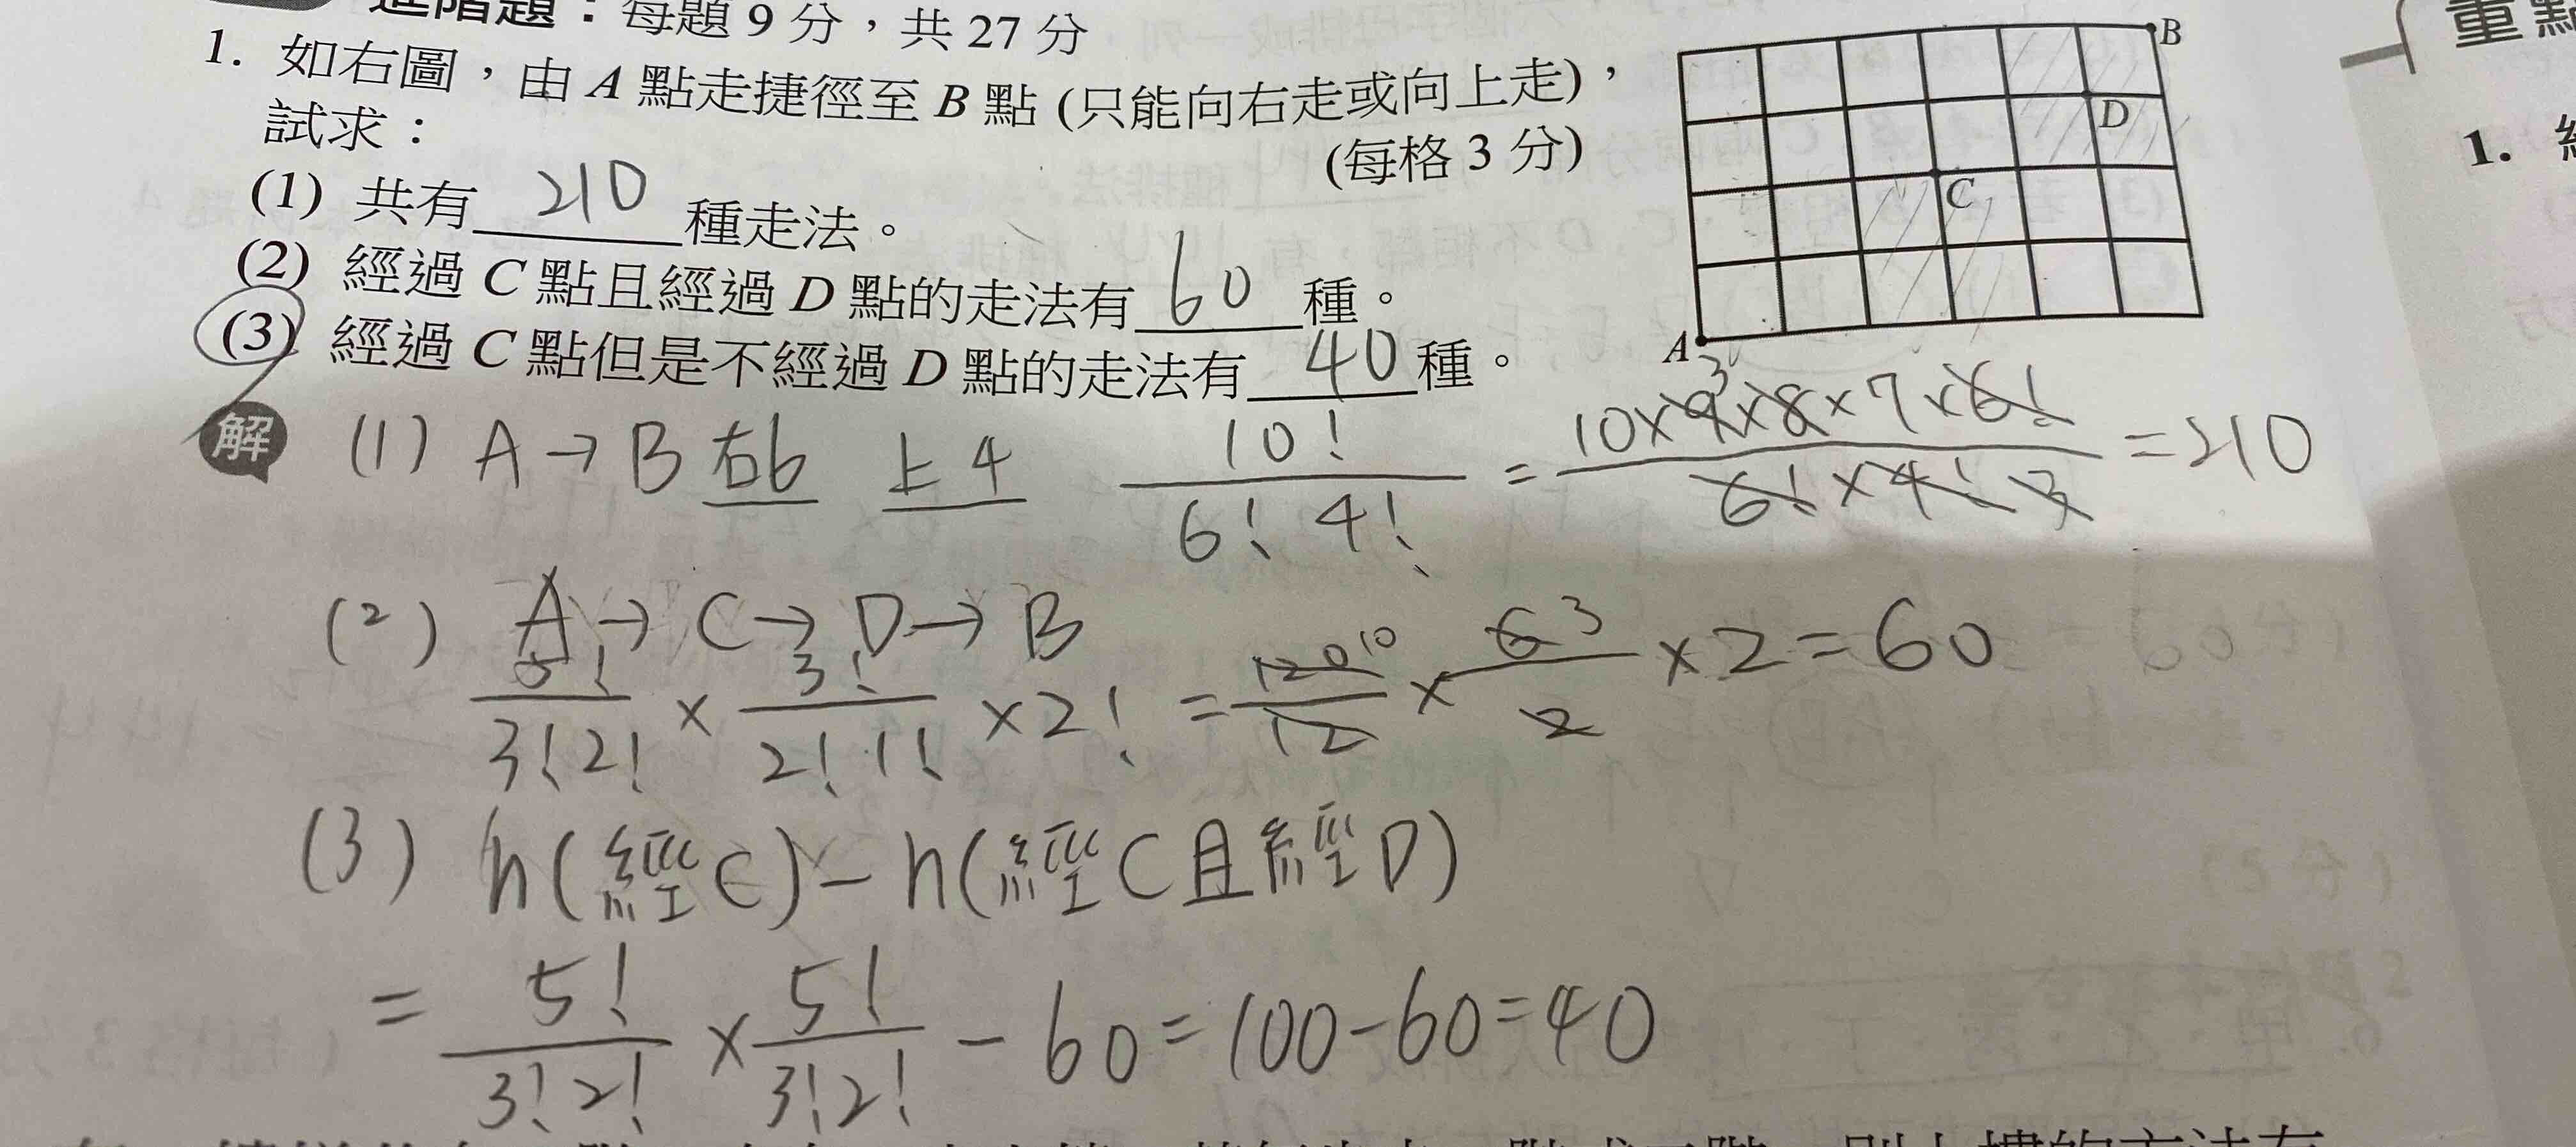 進階題：每題 9 分，共 27 分
1. 如右圖，由 A 點走捷徑至 B 點 (只能向右走或向上走)，
試求： (每格 3 分)
(1) 共有 210 種走法。
(2) 經過 C 點且經過 D 點的走法有 60 種。
(3) 經過 C 點但是不經過 D 點的走法有 40 種。
B
D
C
A
解 (1) A → B 右6 上4 10!/6!4! = 10×9×8×7×6!/6!×4! = 210
(2) A → C → D → B
5!/3!2! × 3!/2!1! × 2! = 120/12 × 6/2 × 2 = 60
(3) n(經C) - n(經C且經D)
= 5!/3!2! × 5!/3!2! - 60 = 100 - 60 = 40
重點
1.